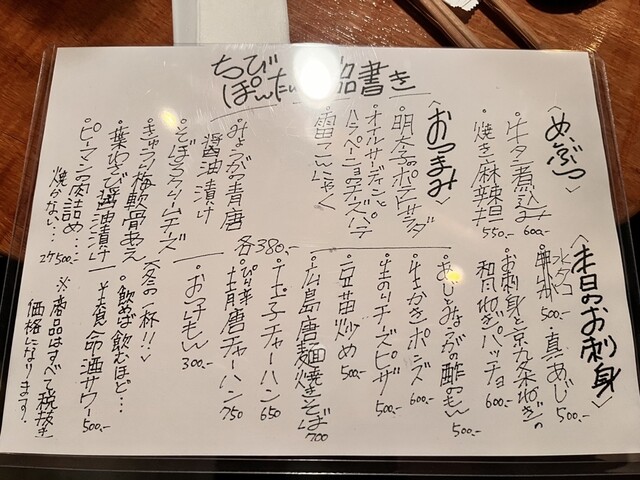 ちびぽんたい
書き
〈めいぶつ〉
・牛タン煮込み 600.-
・焼き麻辣担 550.-
〈おつまみ〉
・明太子のポテトサラダ
・オイルサーディンと
ハラペーニョのチーズパテ
・雷こんにゃく
・みょうがの青唐
醤油漬け
・そぼろクリームチーズ
・きゅうり梅軟骨あえ
・葉わさび醤油漬け
各380.-
・ピーマン肉詰め…
焼かない… 2ケ500.-
〈本日のお刺身〉
・水タコ 500.- ・真あじ 500.-
・お刺身と京九条ねぎの
和風ねぎパッチョ 600.-
・あじとみょうがの酢のもの 500.-
・生かきポン酢 600.-
・生のりチーズピザ 500.-
・豆苗炒め 500.-
・広島唐麺焼きそば 700
・玉子チャーハン 650
・ぴり辛
青唐チャーハン 750
・おつけもの 300.-
〈冬の一杯!!〉
・飲めば飲むほど…
養命酒サワー 500.-
※商品はすべて税抜き
価格になります。